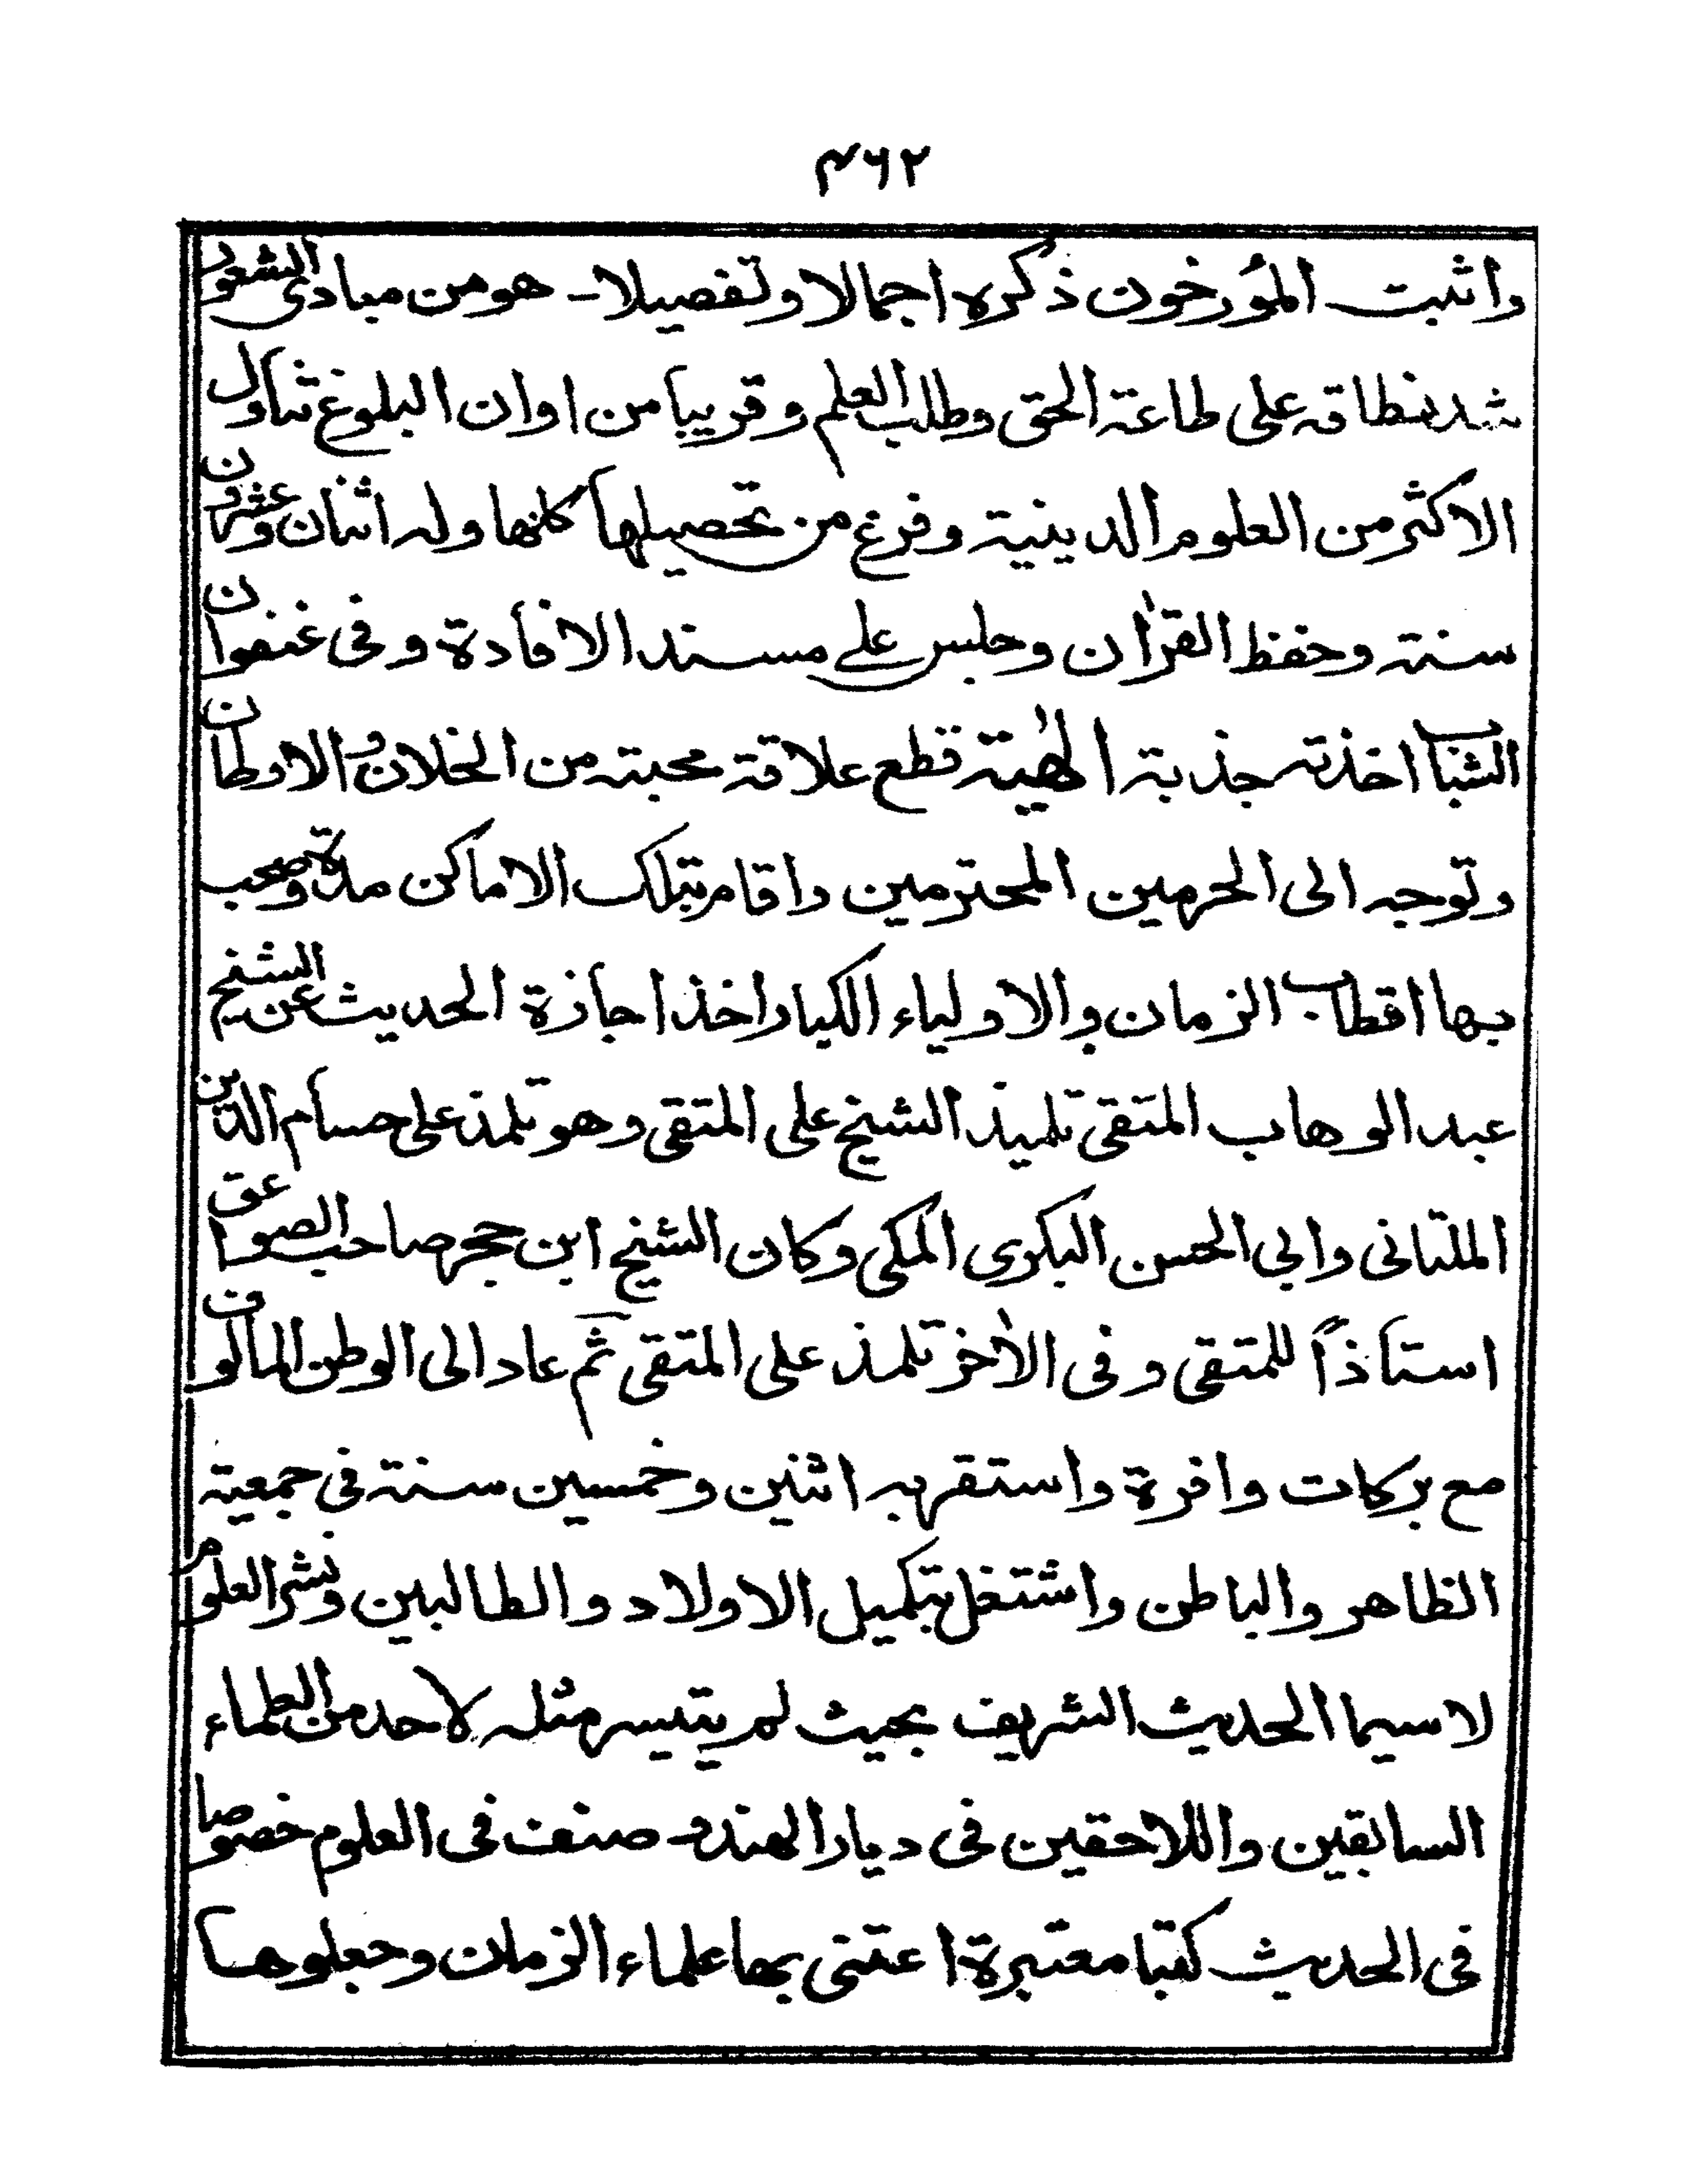 ۴۶۲
واثبت المؤرخون ذكره اجمالا وتفصيلا - هو من مبادى الشعور
شد نطاقه على طاعة الحق وطلب العلم وقريبا من اوان البلوغ تناول
الاكثر من العلوم الدينية وفرغ من تحصيلها كلها وله اثنان وعشرون
سنة وحفظ القرآن وجلس على مسند الافادة وفى عنفوان
الشباب اخذته جذبة الٰهية قطع علاقة محبته من الخلان والاوطان
وتوجه الى الحرمين المحترمين واقام بتلك الاماكن مدة وصحب
بها اقطاب الزمان والاولياء الكبار واخذ اجازة الحديث عن الشيخ
عبد الوهاب المتقى تلميذ الشيخ على المتقى وهو تلمذ على حسام الدين
الملتانى وابى الحسن البكرى المكى وكان الشيخ ابن حجر صاحب الصواعق
استاذاً للمتقى وفى الآخر تلمذ على المتقى ثم عاد الى الوطن المالوف
مع بركات وافرة واستقر به اثنين وخمسين سنة فى جمعية
الظاهر والباطن واشتغل بتكميل الاولاد والطالبين ونشر العلوم
لاسيما الحديث الشريف بحيث لم يتيسر مثله لاحد من العلماء
السابقين واللاحقين فى ديار الهند و صنف فى العلوم خصوصا
فى الحديث كتبا معتبرة اعتنى بها علماء الزمان وجعلوها